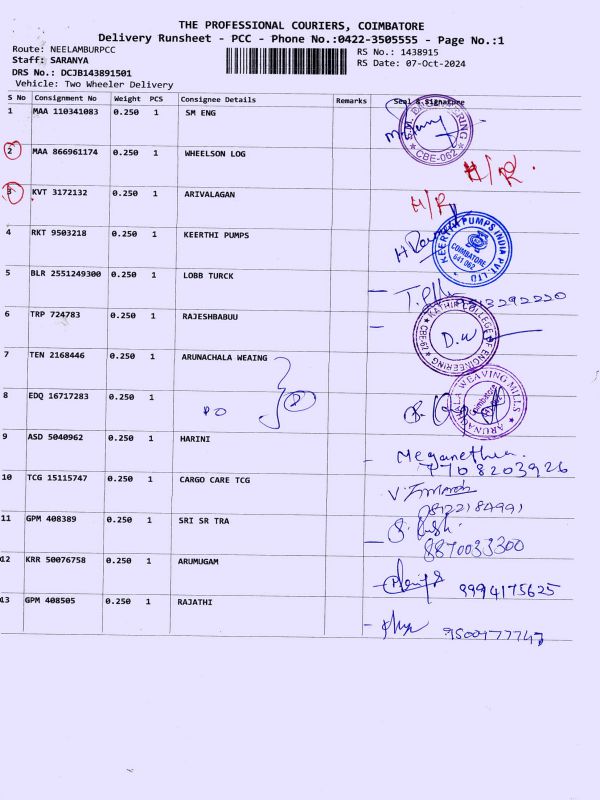 THE PROFESSIONAL COURIERS, COIMBATORE
Delivery Runsheet - PCC - Phone No.:0422-3505555 - Page No.:1
Route: NEELAMBURPCC RS No.: 1438915
Staff: SARANYA RS Date: 07-Oct-2024
DRS No.: DCJB143891501
Vehicle: Two Wheeler Delivery
S No Consignment No Weight PCS Consignee Details Remarks Seal & Signature
1 MAA 110341083 0.250 1 SM ENG
CBE-062
2 MAA 866961174 0.250 1 WHEELSON LOG H/R.
3 KVT 3172132 0.250 1 ARIVALAGAN H/R
4 RKT 9503218 0.250 1 KEERTHI PUMPS
KEERTHI PUMPS INDIA PVT. LTD
COIMBATORE
641 062
5 BLR 2551249300 0.250 1 LOBB TURCK
6 TRP 724783 0.250 1 RAJESHBABUU
COLLEGE OF ENGINEERING
D.W
7 TEN 2168446 0.250 1 ARUNACHALA WEAING
ARUNACHALA WEAVING MILLS
Coimbatore
8 EDQ 16717283 0.250 1 DO
9 ASD 5040962 0.250 1 HARINI
7708203926
10 TCG 15115747 0.250 1 CARGO CARE TCG
11 GPM 408389 0.250 1 SRI SR TRA
8870033300
12 KRR 50076758 0.250 1 ARUMUGAM
9994175625
13 GPM 408505 0.250 1 RAJATHI